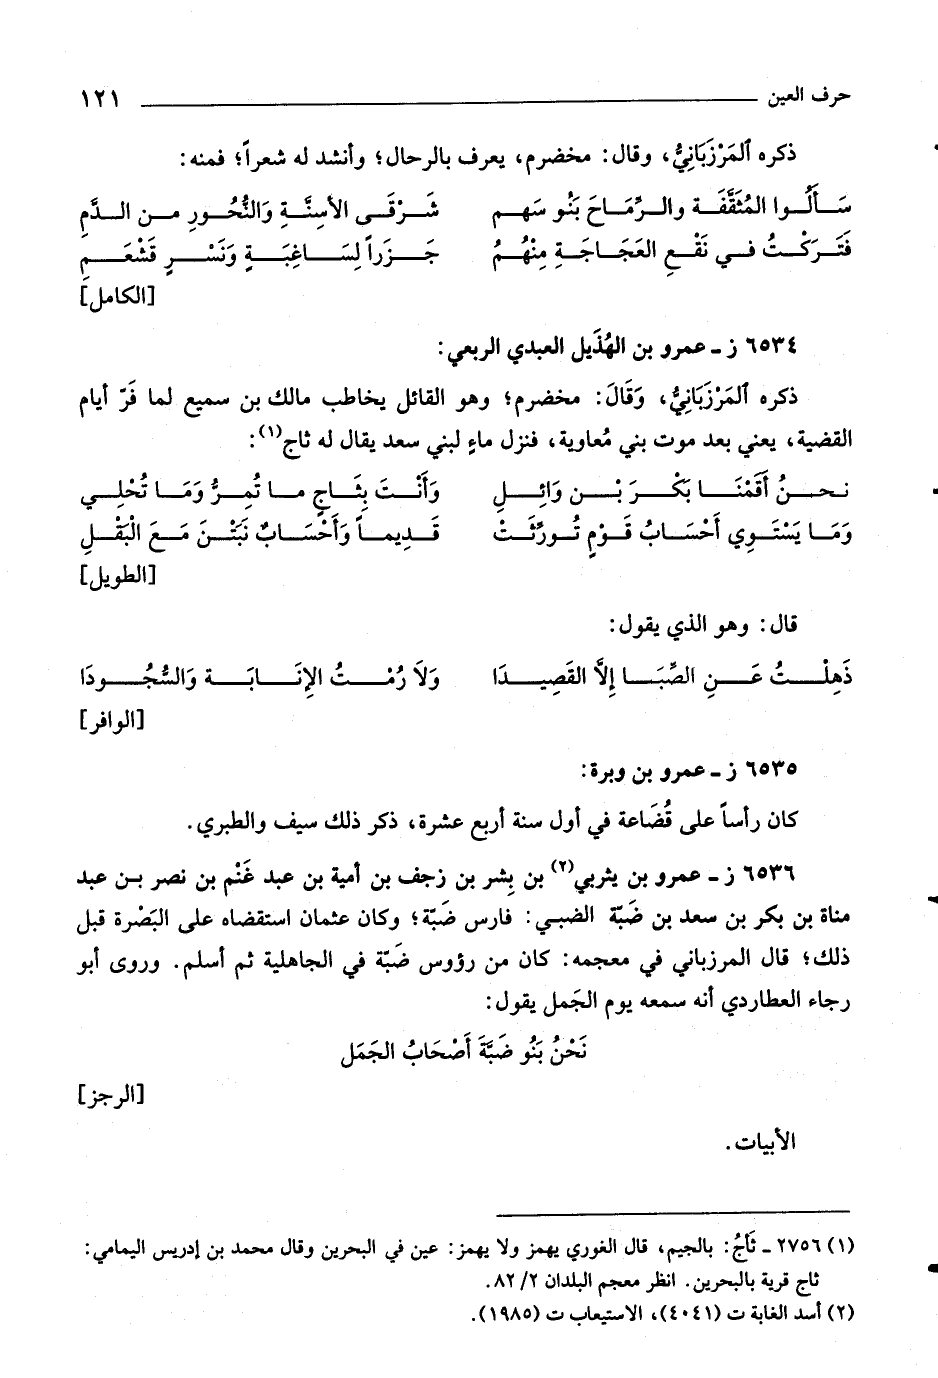 حرف العين ١٢١
ذكره ٱلمَرْزَبَانِيُّ، وقال: مخضرم، يعرف بالرحال؛ وأنشد له شعراً؛ فمنه:
سَأَلُوا المُثَقَّفَة والرِّمَاحَ بَنُو سَهم شَرْقَى الأسِنَّةِ وَالنُّحُورِ من الدَّمِ
فَتَرَكْتُ في نَقْعِ العَجَاجَةِ مِنْهُمُ جَزَراً لِسَاغِبَةٍ وَنَسْرٍ قَشْعَمِ
[الكامل]
٦٥٣٤ ز ـ عمرو بن الهُذَيل العبدي الربعي:
ذكره ٱلمَرْزَبَانِيُّ، وَقَالَ: مخضرم؛ وهو القائل يخاطب مالك بن سميع لما فَرّ أيام
القضية، يعني بعد موت بني مُعاوية، فنزل ماءٍ لبني سعد يقال له ثاج(١):
نحنُ أَقَمْنَا بَكْرَ بْن وَائِلِ وَأَنْتَ بِثَاجِ ما تُمِرُّ وَمَا تُحْلِي
وَمَا يَسْتَوِي أَحْسَابُ قَوْمٍ تُورِّثَتْ قَدِيماً وَأَحْسَابٌ نَبَتْنَ مَعَ الْبَقْلِ
[الطويل]
قال: وهو الذي يقول:
ذَهِلْتُ عَنِ الصِّبَا إلاَّ القَصِيدَا وَلاَ رُمْتُ الإِنَابَةَ وَالسُّجُودَا
[الوافر]
٦٥٣٥ ز ـ عمرو بن وبرة:
كان رأساً على قُضَاعة في أول سنة أربع عشرة، ذكر ذلك سيف والطبري.
٦٥٣٦ ز ـ عمرو بن يثربي(٢) بن بِشر بن زجف بن أمية بن عبد غَنْم بن نصر بن عبد
مناة بن بكر بن سعد بن ضَبّة الضبي: فارس ضَبّة؛ وكان عثمان استقضاه على البَصْرة قبل
ذلك؛ قال المرزباني في معجمه: كان من رؤوس ضَبّة في الجاهلية ثم أسلم. وروى أبو
رجاء العطاردي أنه سمعه يوم الجَمل يقول:
نَحْنُ بَنُو ضَبَّةَ أَصْحَابُ الجَمَل
[الرجز]
الأبيات.
(١) ٢٧٥٦ ـ ثَاجُ: بالجيم، قال الغوري يهمز ولا يهمز: عين في البحرين وقال محمد بن إدريس اليمامي:
ثاج قرية بالبحرين. انظر معجم البلدان ٨٢/٢.
(٢) أسد الغابة ت (٤٠٤١)، الاستيعاب ت (١٩٨٥).